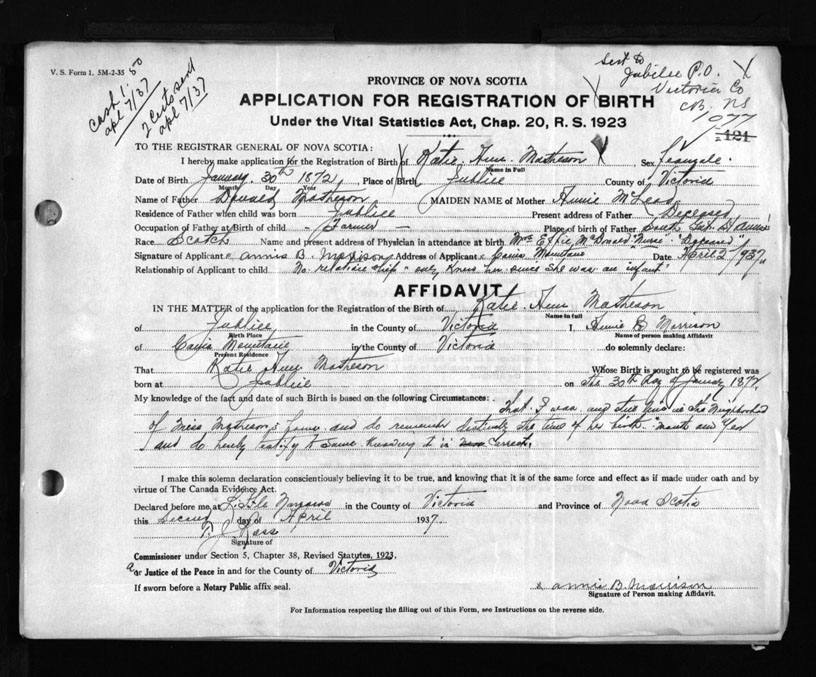 V. S. Form 1. 5M-2-35
Cash 1.50
apl 7/37
2 Certs sent
apl 7/37
Sent to
Jubilee P.O.
Victoria Co
CB. NS
1077
121
PROVINCE OF NOVA SCOTIA
APPLICATION FOR REGISTRATION OF BIRTH
Under the Vital Statistics Act, Chap. 20, R. S. 1923
TO THE REGISTRAR GENERAL OF NOVA SCOTIA:
I hereby make application for the Registration of Birth of Katie Ann Matheson Sex
Name in Full
Date of Birth January 30th 1872 Place of Birth Jubilee County of Victoria
Month Day Year
Name of Father Donald Matheson MAIDEN NAME of Mother Annie McLeod
Residence of Father when child was born Jubilee Present address of Father Deceased
Occupation of Father at Birth of child - Farmer - Place of Birth of Father South
Race Scotch Name and present address of Physician in attendance at birth Mrs Effie McDonald "Nurse" "Deceased"
Signature of Applicant Annie B. Morrison Address of Applicant Cains Mountain Date April 2/937
Relationship of Applicant to child No relationship "only knows her since she was an infant"
AFFIDAVIT
IN THE MATTER of the application for the Registration of the Birth of Katie Ann Matheson
Name in full
of Jubilee in the County of Victoria I, Annie B Morrison
Birth Place Name of person making Affidavit
of Cains Mountain in the County of Victoria do solemnly declare:
Present Residence
That Katie Ann Matheson Whose Birth is sought to be registered was
born at Jubilee on the 30th day of January 1872
My knowledge of the fact and date of such Birth is based on the following Circumstances: That I was and still live in the Neighborhood
of Miss Matheson's home and do remember distinctly the time of her birth "month and year
and do hereby testify to same Knowing it is correct.
I make this solemn declaration conscientiously believing it to be true, and knowing that it is of the same force and effect as if made under oath and by
virtue of The Canada Evidence Act.
Declared before me at Little Narrows in the County of Victoria and Province of Nova Scotia
this Second day of April 1937.
Ross
Signature of
Commissioner under Section 5, Chapter 38, Revised Statutes, 1923.
or Justice of the Peace in and for the County of Victoria
If sworn before a Notary Public affix seal.
Annie B. Morrison
Signature of Person making Affidavit.
For Information respecting the filling out of this Form, see Instructions on the reverse side.